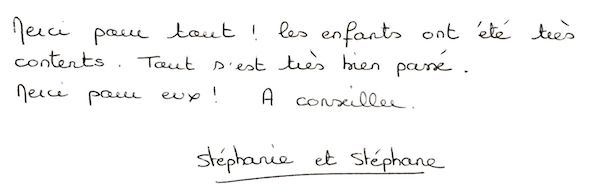 Merci pour tout ! les enfants ont été très
contents. Tout s'est très bien passé.
Merci pour eux ! A conseiller.
Stéphanie et Stéphane